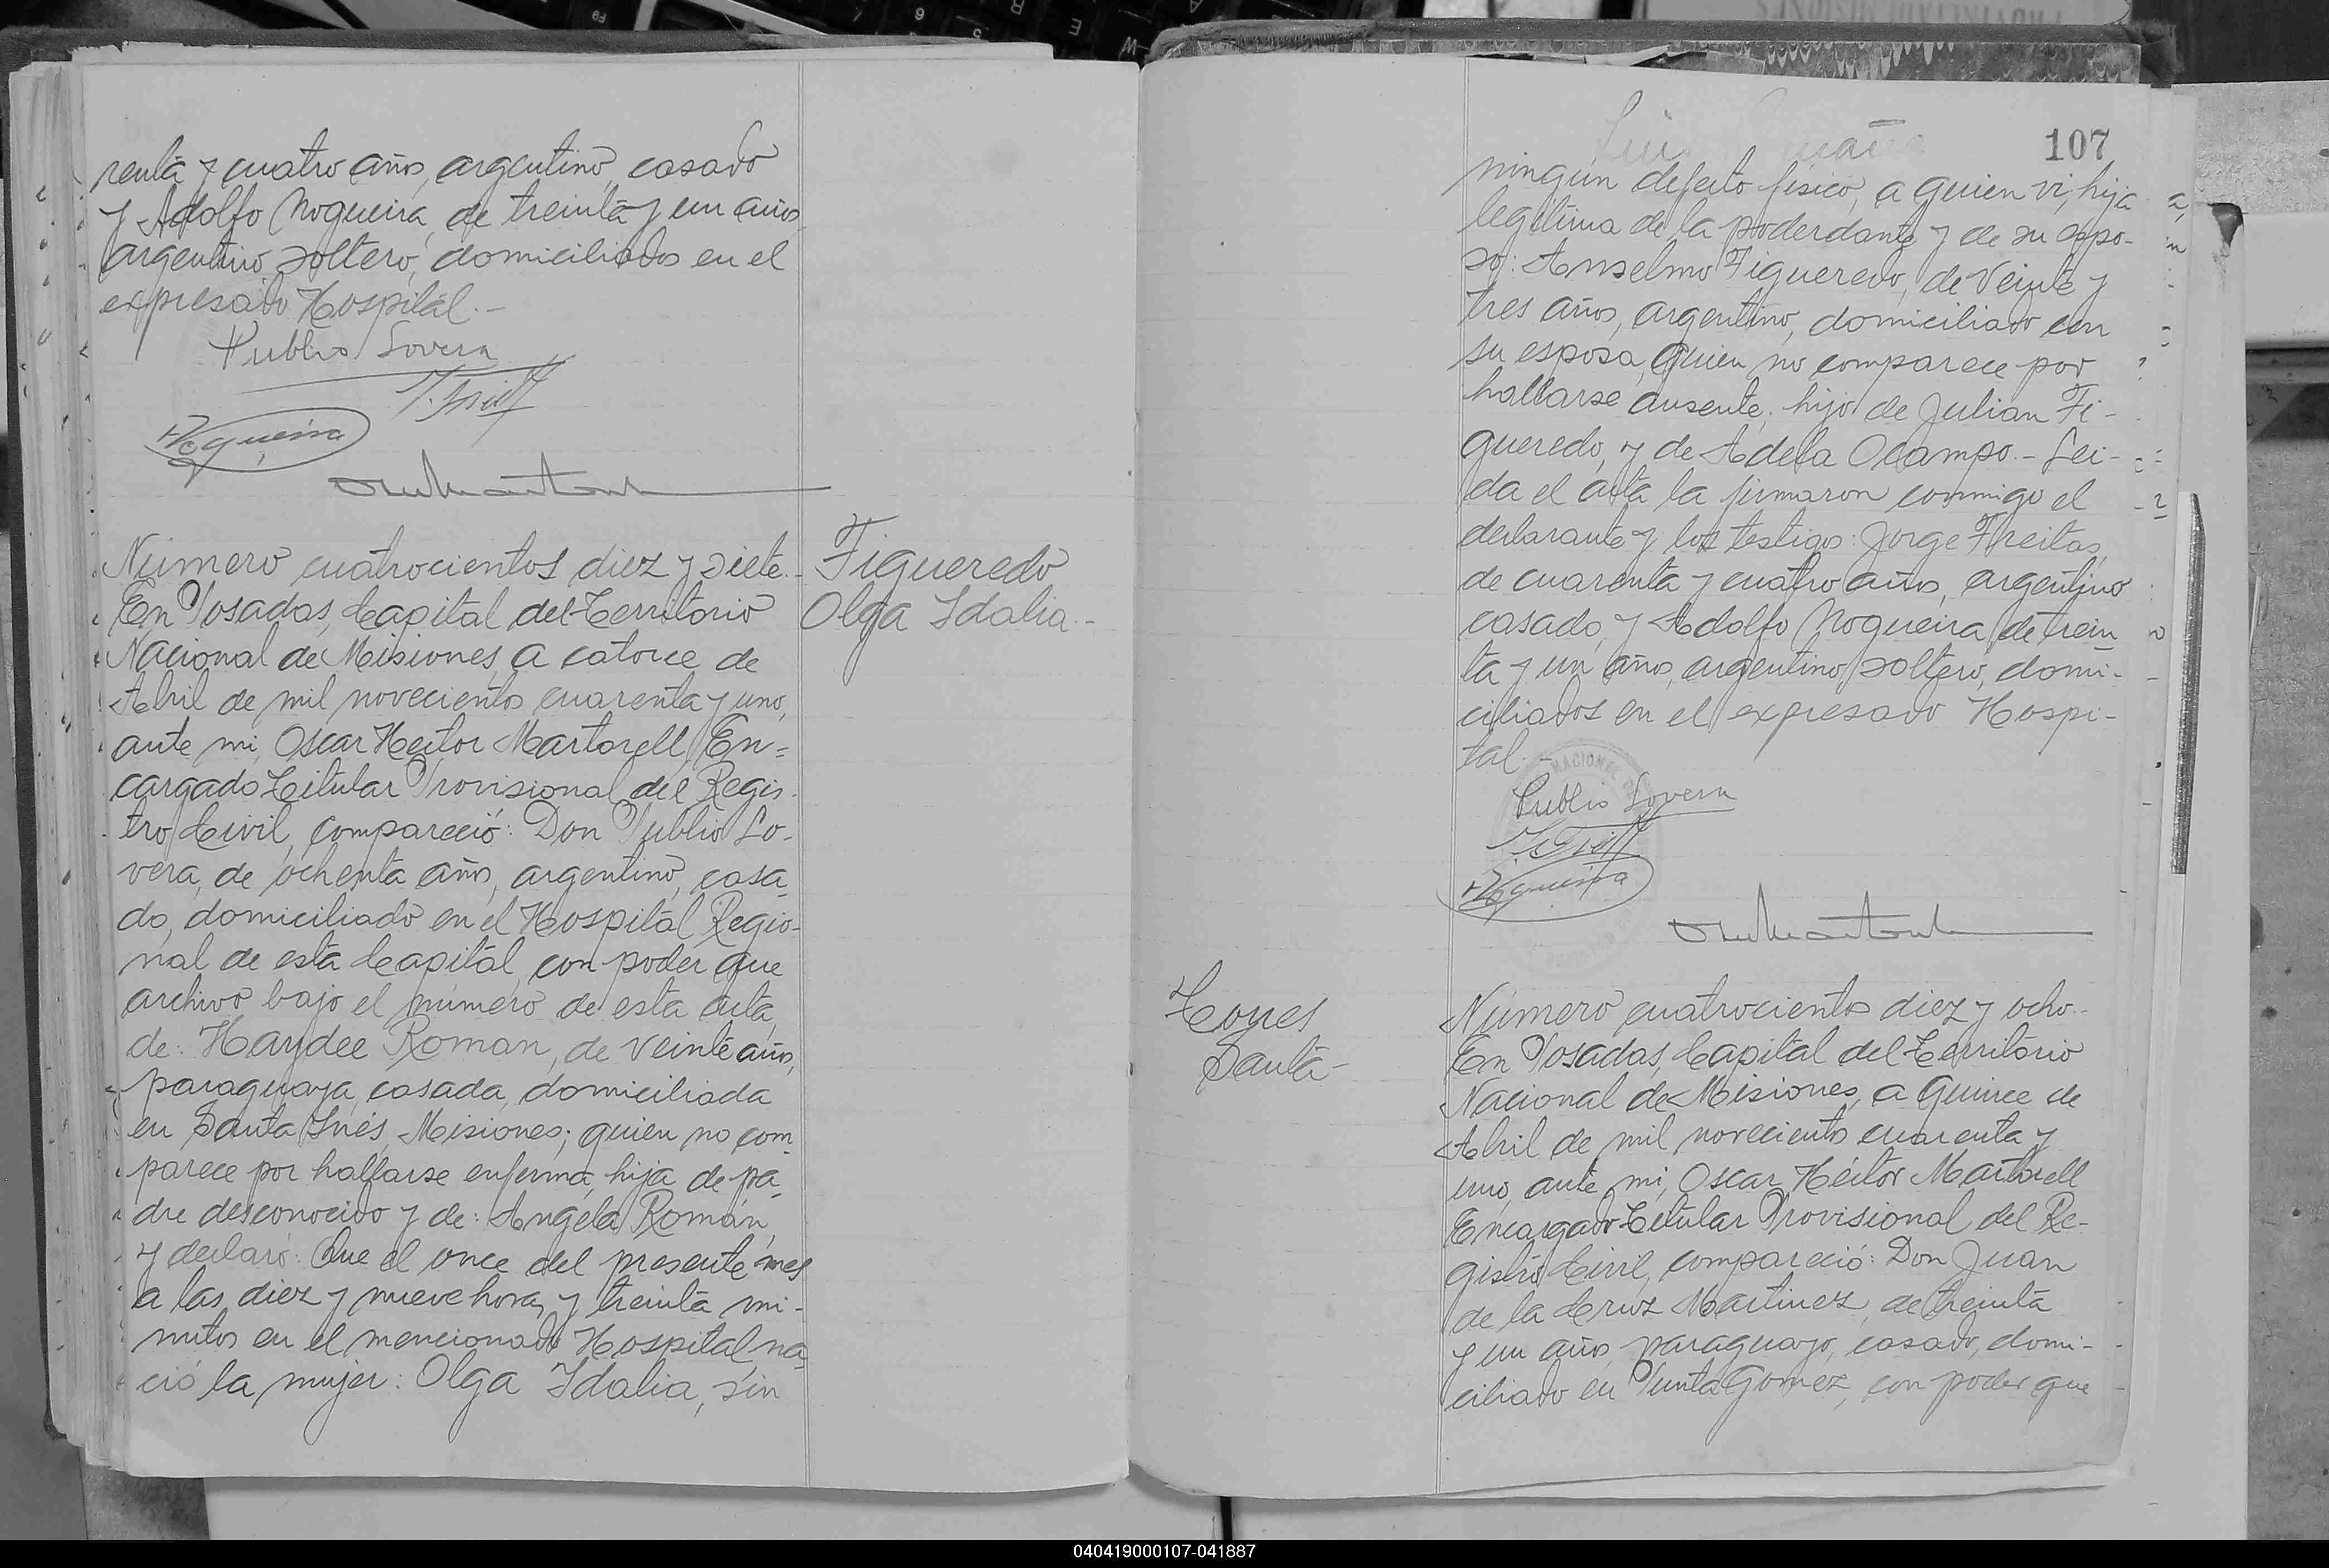 renta y cuatro años, argentino, casado
y Adolfo Nogueira, de treinta y un años,
argentino, soltero, domiciliados en el
expresado Hospital.-
Publio Lovera
Nogueira
Número cuatrocientos diez y siete.-
En Posadas, Capital del Territorio
Nacional de Misiones, a catorce de
Abril de mil novecientos cuarenta y uno,
ante mi, Oscar Hector Martorell, En-
cargado Titular Provisional del Regis-
tro Civil, compareció: Don Publio Lo-
vera, de ochenta años, argentino, casa-
do, domiciliado en el Hospital Regio-
nal de esta Capital, con poder que
archivo bajo el número de esta acta,
de: Haydee Roman, de veinte años,
paraguaya, casada, domiciliada
en Santa Inés, Misiones; quien no com-
parece por hallarse enferma, hija de pa-
dre desconocido y de: Angela Román,
y declaró: Que el once del presente mes
a las diez y nueve horas y treinta mi-
nutos en el mencionado Hospital na-
ció la mujer: Olga Idalia, sin
Figueredo
Olga Idalia.-
107
ningún defecto físico, a quien vi, hija
legítima de la poderdante y de su espo-
so: Anselmo Figueredo, de veinte y
tres años, argentino, domiciliado con
su esposa, quien no comparece por
hallarse ausente, hijo de Julian Fi-
gueredo, y de Adela Ocampo.- Lei-
da el acta la firmaron conmigo el
declarante y los testigos: Jorge Freitas,
de cuarenta y cuatro años, argentino
casado, y Adolfo Nogueira, de trein
ta y un años, argentino, soltero, domi-
ciliados en el expresado Hospi-
tal.-
NACIONAL
Publio Lovera
Nogueira
Torres
Santa-
Número cuatrocientos diez y ocho.-
En Posadas, Capital del Territorio
Nacional de Misiones, a quince de
Abril de mil novecientos cuarenta y
uno, ante mi, Oscar Héctor Martorell
Encargado Titular Provisional del Re-
gistro Civil, compareció: Don Juan
de la Cruz Martinez, de treinta
y un años, paraguayo, casado, domi-
ciliado en Punta Gomez, con poder que
040419000107-041887